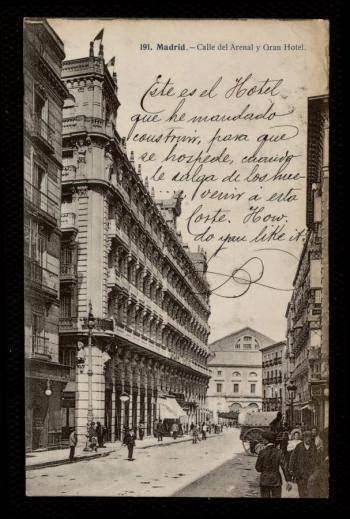 191. Madrid. – Calle del Arenal y Gran Hotel.
Este es el Hotel
que he mandado
construir, para que
se hospede, cuando
le salga de los hue
venir á esta
Corte. How
do you like it?